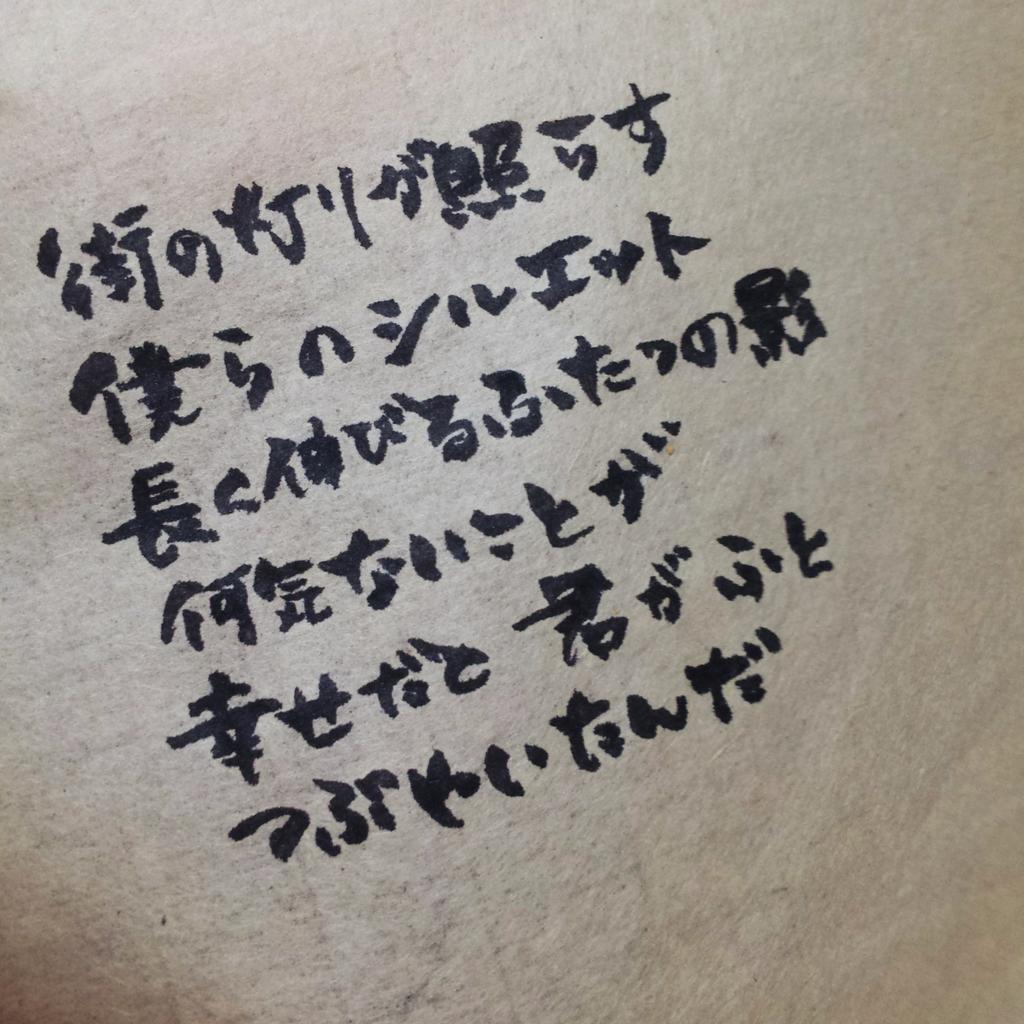 街の灯りが照らす
僕らのシルエット
長く伸びるふたつの影
何気ないことが
幸せだと 君がふと
つぶやいたんだ